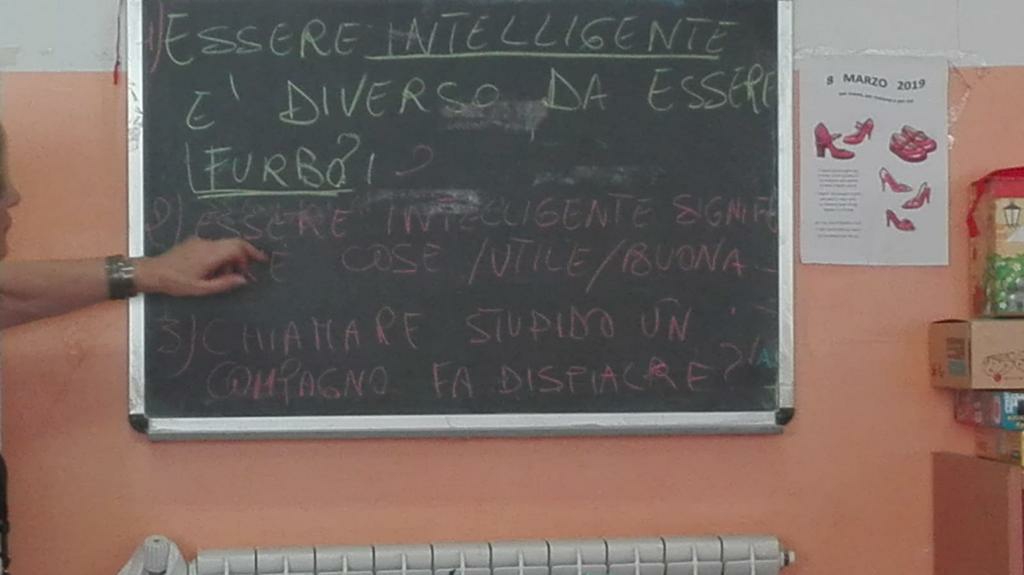 1) ESSERE INTELLIGENTE
E' DIVERSO DA ESSERE
FURBO?
2) ESSERE INTELLIGENTE
COSE /UTILE/BUONA
3) CHIAMARE STUPIDO UN
COMPAGNO FA DISPIACERE?
8 MARZO 2019